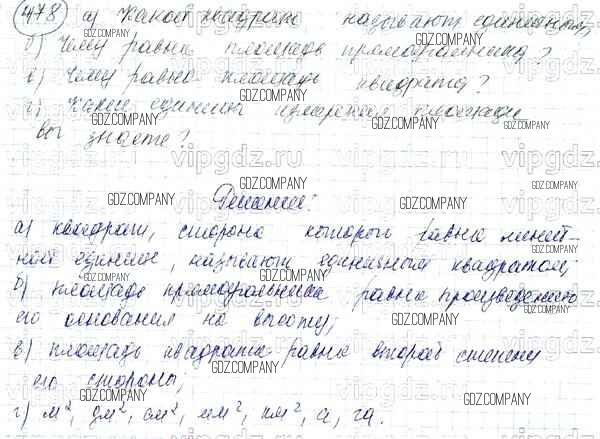 478 а) Какой квадрат называют единичным,
б) Чему равна площадь прямоугольника?
в) Чему равна площадь квадрата?
г) Какие единицы измерения площади
вы знаете?
Решение:
а) квадрат, сторона которого равна линей-
ной единице, называют единичным квадратом;
б) площадь прямоугольника равна произведению
его основания на высоту;
в) площадь квадрата равна второй степени
его стороны;
г) м², дм², см², мм², км², а, га.